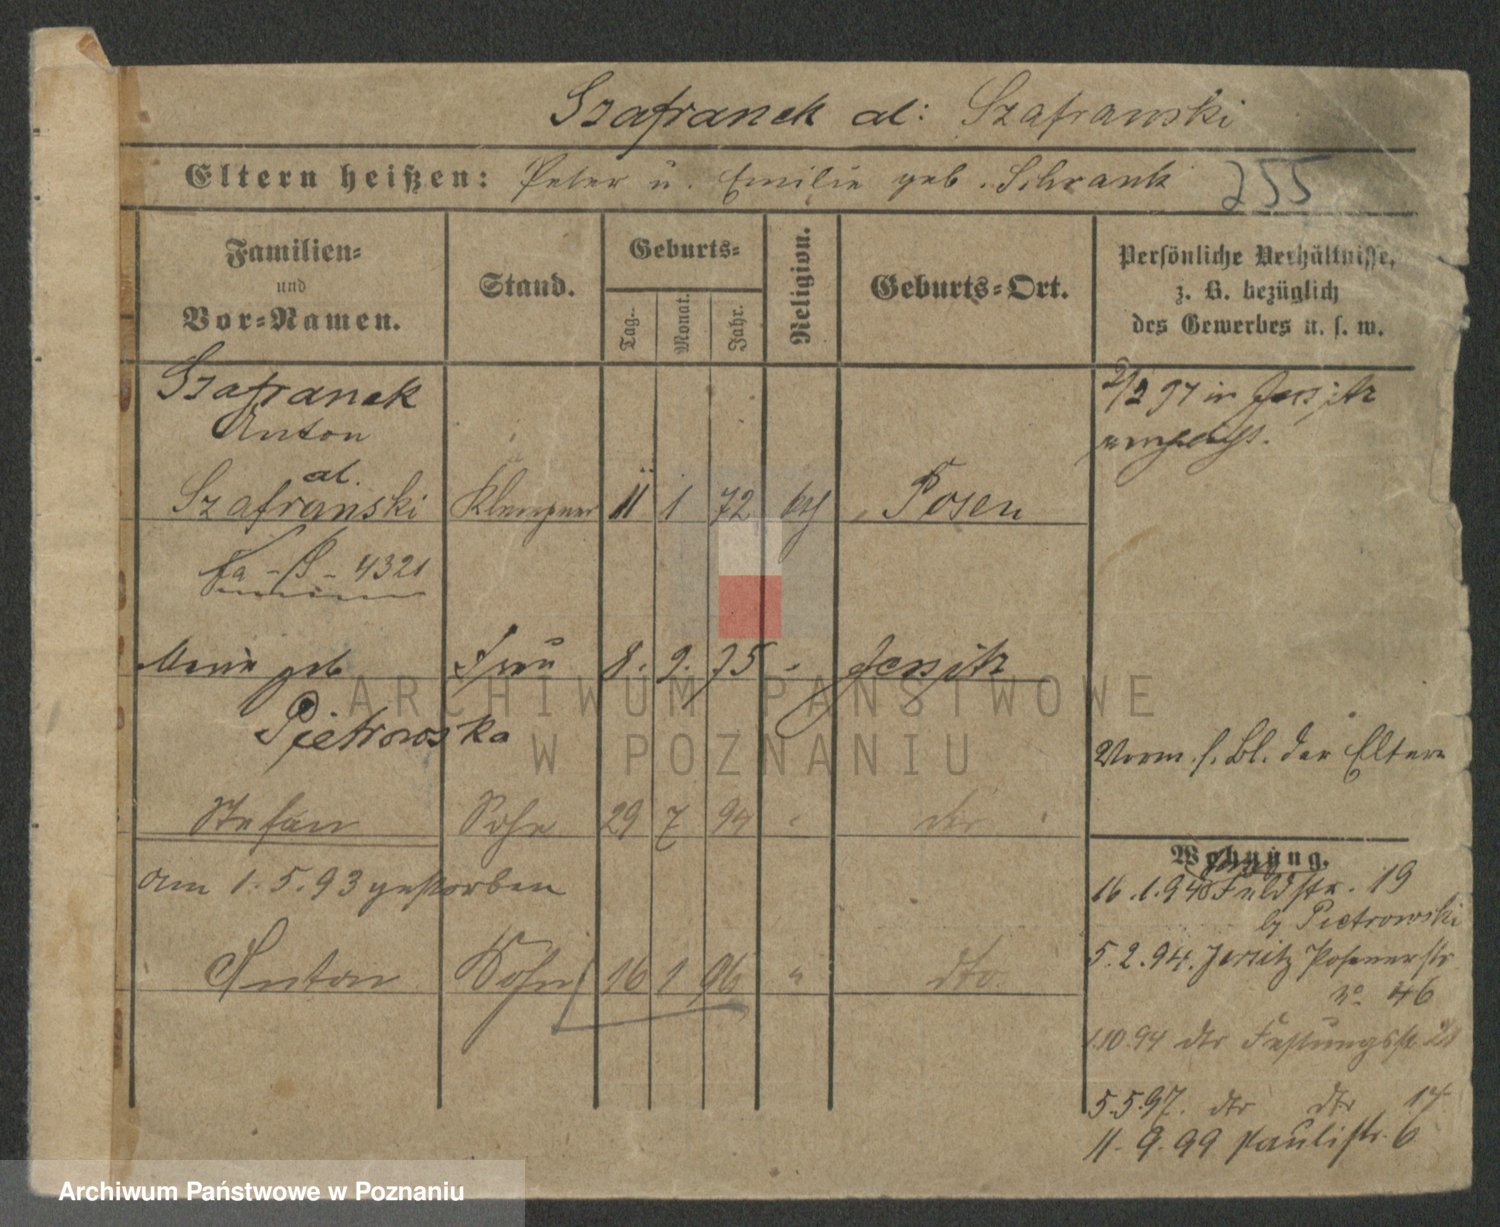 Szafranek al: Szafranski
Eltern heißen: Peter u. Emilie geb. Schrank
255
Familien-
und
Vor-Namen.
Stand.
Geburts-
Tag.
Monat.
Jahr.
Religion.
Geburts-Ort.
Persönliche Verhältnisse,
z. B. bezüglich
des Gewerbes u. s. w.
Szafranek
Anton
al.
Szafranski Klempner 11 1 72 kth Posen
4321
2/2 97 in Jersitz
Marie geb Frau 8. 9. 75 " Jersitz
Pietrowska
Vorm. s. Bl. der Eltern
Stefan Sohn 29 7 94 " dto
am 1.5.93 gestorben
Anton Sohn 16 1 96 " dto.
Wohnung.
16.1.94 Feldstr. 19
by Pietrowski
5.2.94. Jersitz Posenerstr
No 46
1.10.94 dto Festungsstr 21
5.5.97. dto dto 14
11.9.99 Paulistr. 6
ARCHIWUM PAŃSTWOWE
W POZNANIU
Archiwum Państwowe w Poznaniu